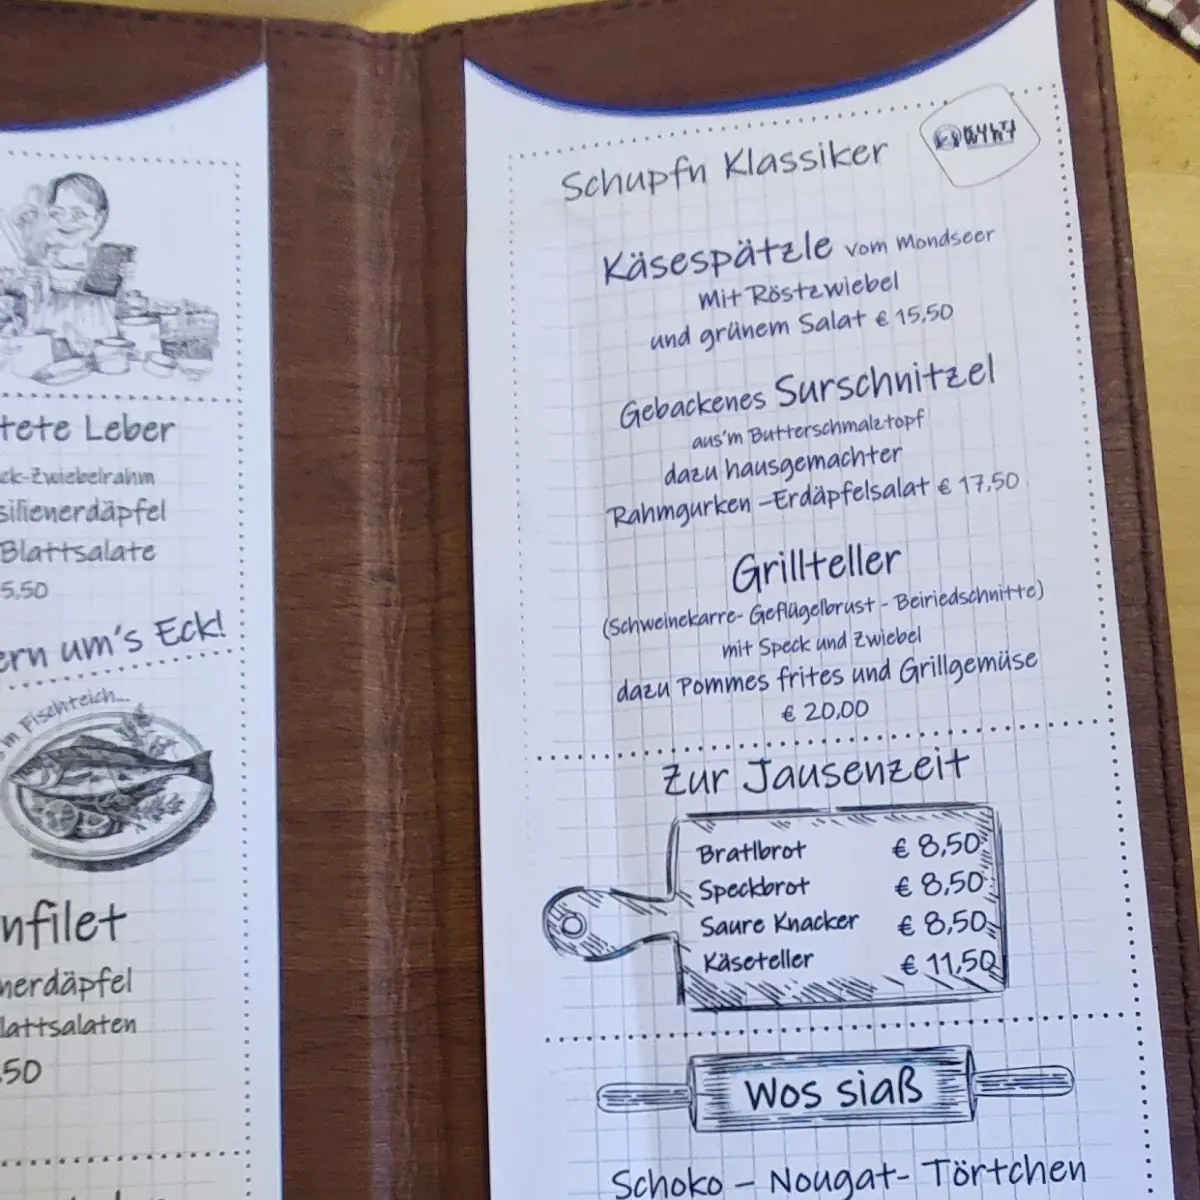 tete Leber
ck-Zwiebelrahm
silienerdäpfel
Blattsalate
5,50
ern um's Eck!
m Fischteich...
nfilet
nerdäpfel
lattsalaten
,50
Schupfn Klassiker
Käsespätzle vom Mondseer
mit Röstzwiebel
und grünem Salat € 15,50
Gebackenes Surschnitzel
aus'm Butterschmalztopf
dazu hausgemachter
Rahmgurken –Erdäpfelsalat € 17,50
Grillteller
(Schweinekarre- Geflügelbrust - Beiriedschnitte)
mit Speck und Zwiebel
dazu Pommes frites und Grillgemüse
€ 20,00
Zur Jausenzeit
Bratlbrot € 8,50
Speckbrot € 8,50
Saure Knacker € 8,50
Käseteller € 11,50
Wos siaß
Schoko – Nougat- Törtchen